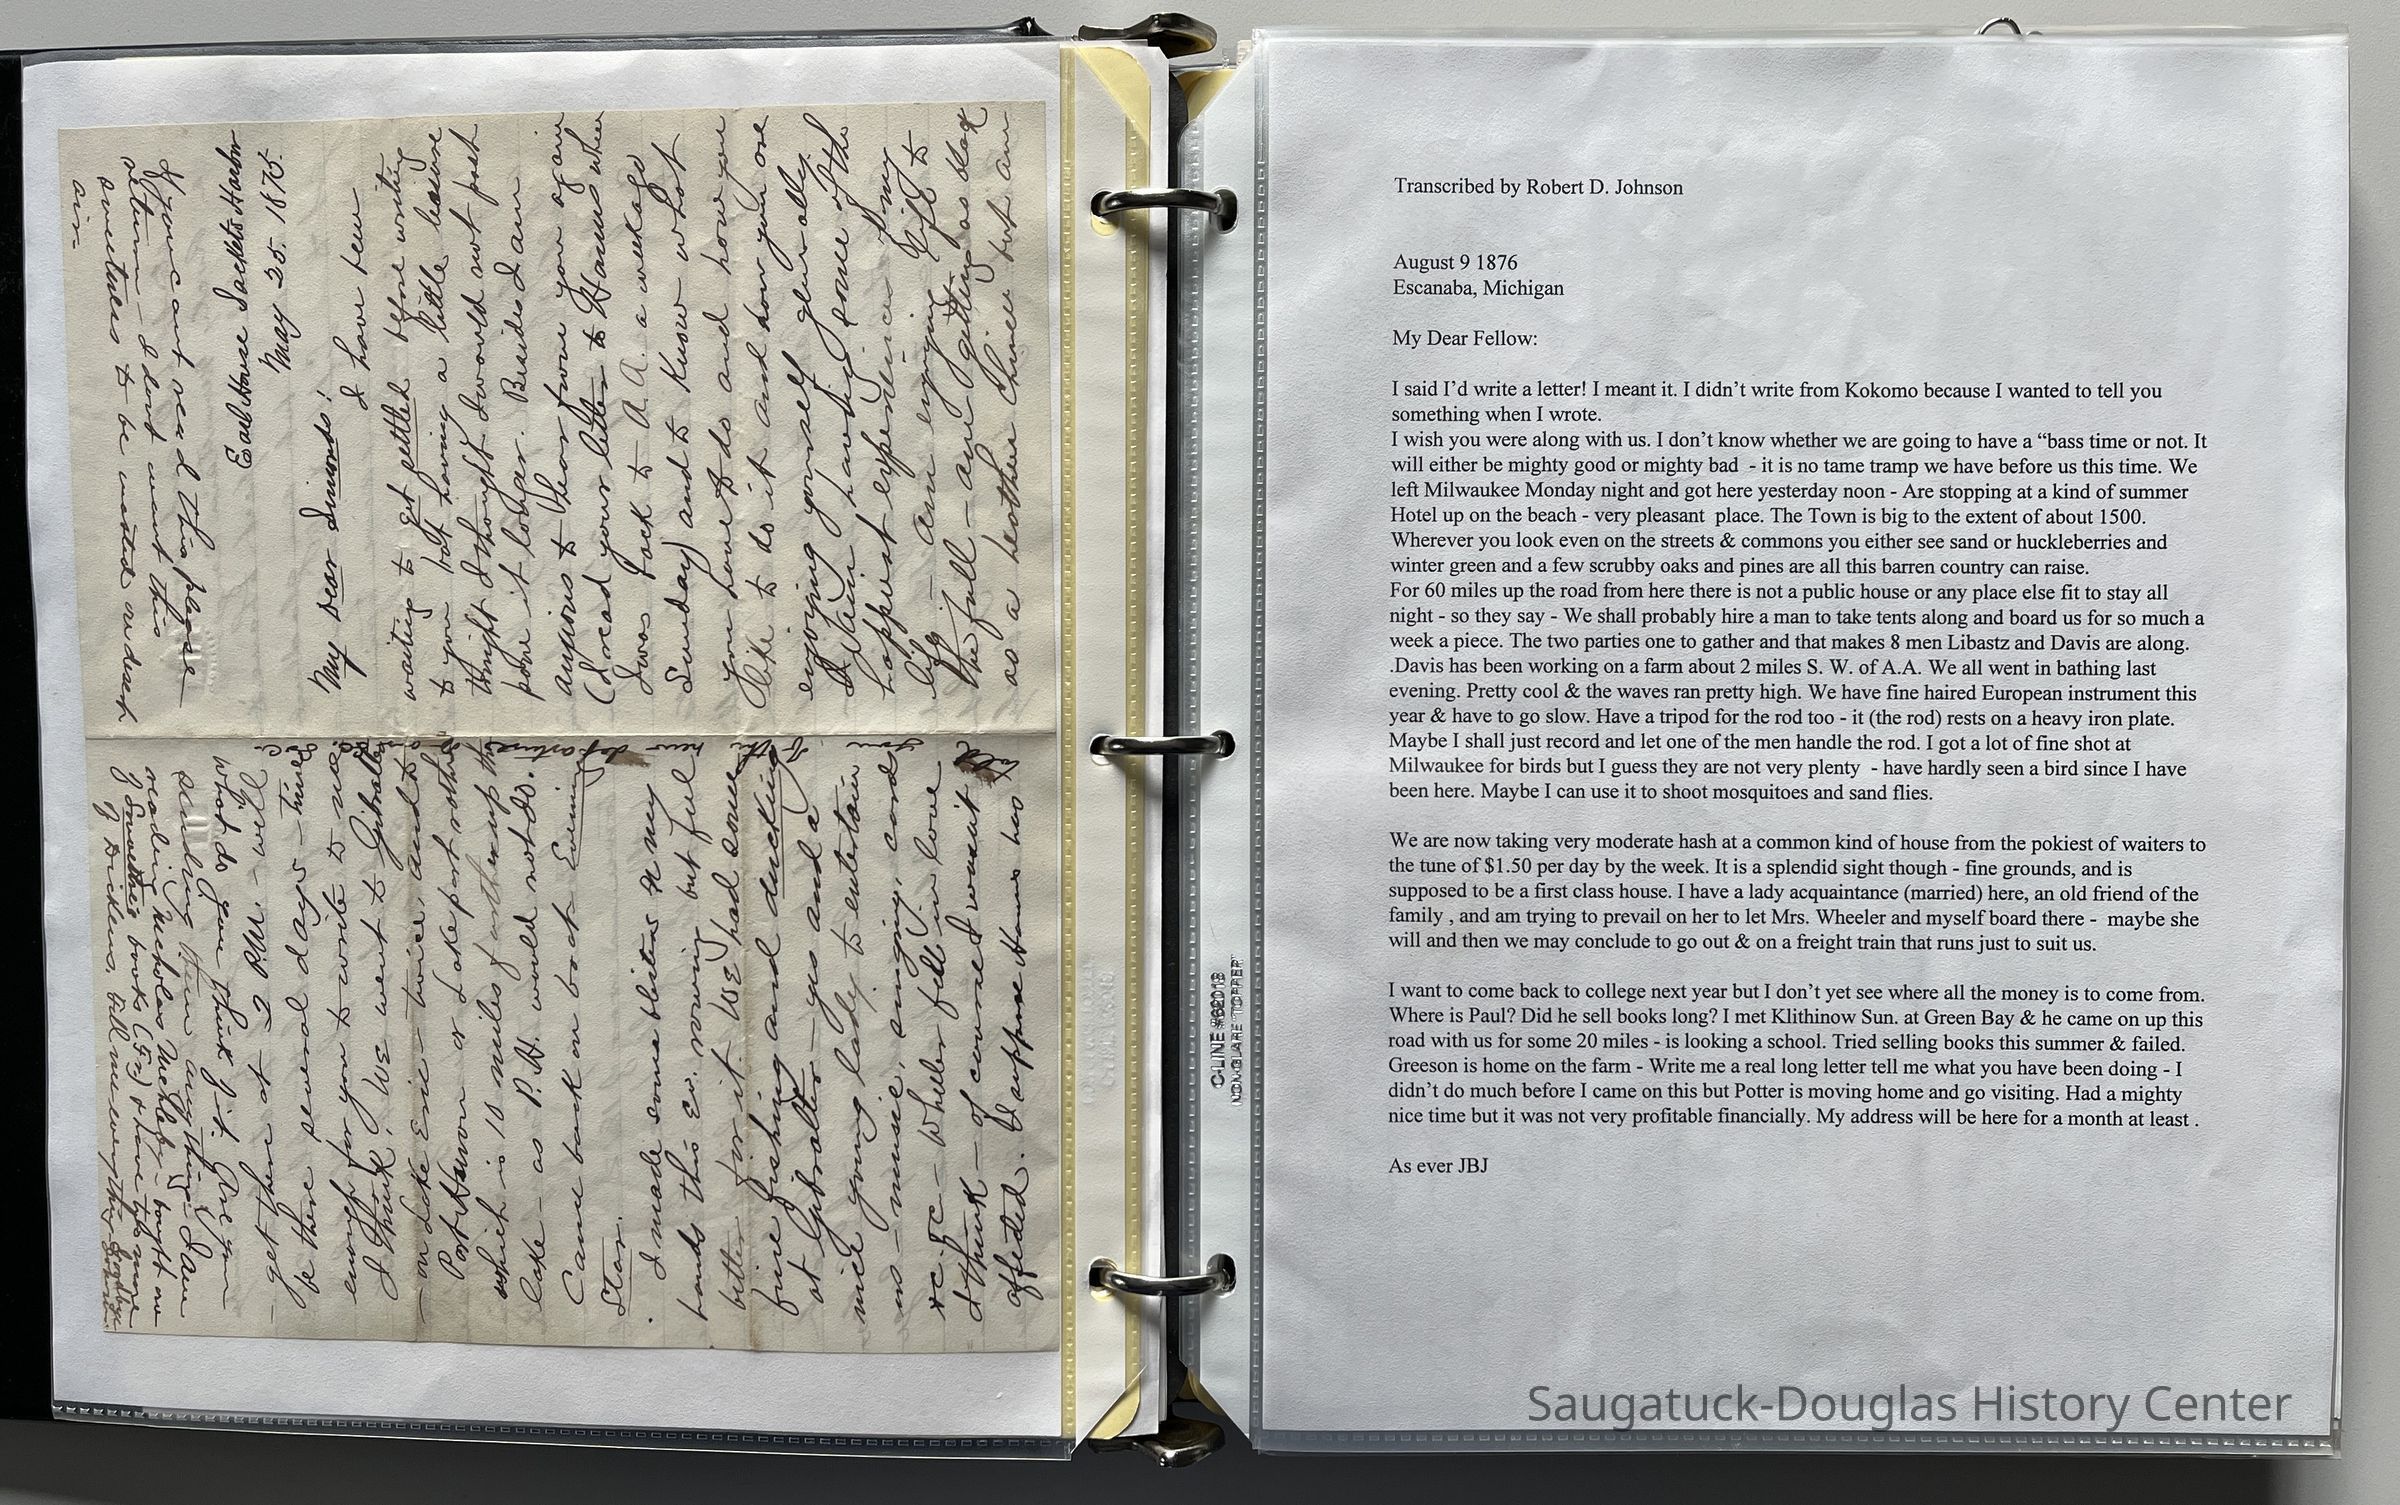 If you cant read this please
return - I dont want this
sometimes to be wasted
Earl House Sackets Harbor
May 25. 1875.
My Dear Simonds!
I have been
waiting to get settled before writing
to you but having a little leisure
tonight I thought I would not post
pone it longer. Besides I am
anxious to hear from you again
(I read your letter to Hanus when
I was back to A.A. a week ago
Sunday) and to know what
you have to do and how you
like to do it and how you are
enjoying yourself generally.
I am having some of the
happiest experience in my
life - am enjoying life to
the full - am getting as black
as a heathen Chinee but am
told
you
the
new departure
- get there at 2 P.M. - will
be there several days - time
enough for you to write to me
I think. We went to Gibralter
- on Lake Erie - twice, and to
Port Huron or Lake port rather
which is 10 miles farther up the
lake - as P.H. would not do.
Came back on boat Evening
Star.
I made some blisters on my
hands this Ev. rowing but feel
better for it. We had some
fine fishing and ducking
at Gibralter - yes and a
nice young lady to entertain
us - music, singing, cards
&c. &c - Wheeler fell in love
I think - of course I wasn't
affected. I suppose Hanus has
What do you think of it. Are you
sending them anything. I am
reading Nicholas Nickleby - bought me
of Dickens. Tell me everything
Transcribed by Robert D. Johnson
August 9 1876
Escanaba, Michigan
My Dear Fellow:
I said I’d write a letter! I meant it. I didn’t write from Kokomo because I wanted to tell you
something when I wrote.
I wish you were along with us. I don’t know whether we are going to have a “bass time or not. It
will either be mighty good or mighty bad  - it is no tame tramp we have before us this time. We
left Milwaukee Monday night and got here yesterday noon - Are stopping at a kind of summer
Hotel up on the beach - very pleasant  place. The Town is big to the extent of about 1500.
Wherever you look even on the streets & commons you either see sand or huckleberries and
winter green and a few scrubby oaks and pines are all this barren country can raise.
For 60 miles up the road from here there is not a public house or any place else fit to stay all
night - so they say - We shall probably hire a man to take tents along and board us for so much a
week a piece. The two parties one to gather and that makes 8 men Libastz and Davis are along.
.Davis has been working on a farm about 2 miles S. W. of A.A. We all went in bathing last
evening. Pretty cool & the waves ran pretty high. We have fine haired European instrument this
year & have to go slow. Have a tripod for the rod too - it (the rod) rests on a heavy iron plate.
Maybe I shall just record and let one of the men handle the rod. I got a lot of fine shot at
Milwaukee for birds but I guess they are not very plenty  - have hardly seen a bird since I have
been here. Maybe I can use it to shoot mosquitoes and sand flies.
We are now taking very moderate hash at a common kind of house from the pokiest of waiters to
the tune of $1.50 per day by the week. It is a splendid sight though - fine grounds, and is
supposed to be a first class house. I have a lady acquaintance (married) here, an old friend of the
family , and am trying to prevail on her to let Mrs. Wheeler and myself board there -  maybe she
will and then we may conclude to go out & on a freight train that runs just to suit us.
I want to come back to college next year but I don’t yet see where all the money is to come from.
Where is Paul? Did he sell books long? I met Klithinow Sun. at Green Bay & he came on up this
road with us for some 20 miles - is looking a school. Tried selling books this summer & failed.
Greeson is home on the farm - Write me a real long letter tell me what you have been doing - I
didn’t do much before I came on this but Potter is moving home and go visiting. Had a mighty
nice time but it was not very profitable financially. My address will be here for a month at least .
As ever JBJ
C-LINE #62018
NON-GLARE "TOPPER"
Saugatuck-Douglas History Center